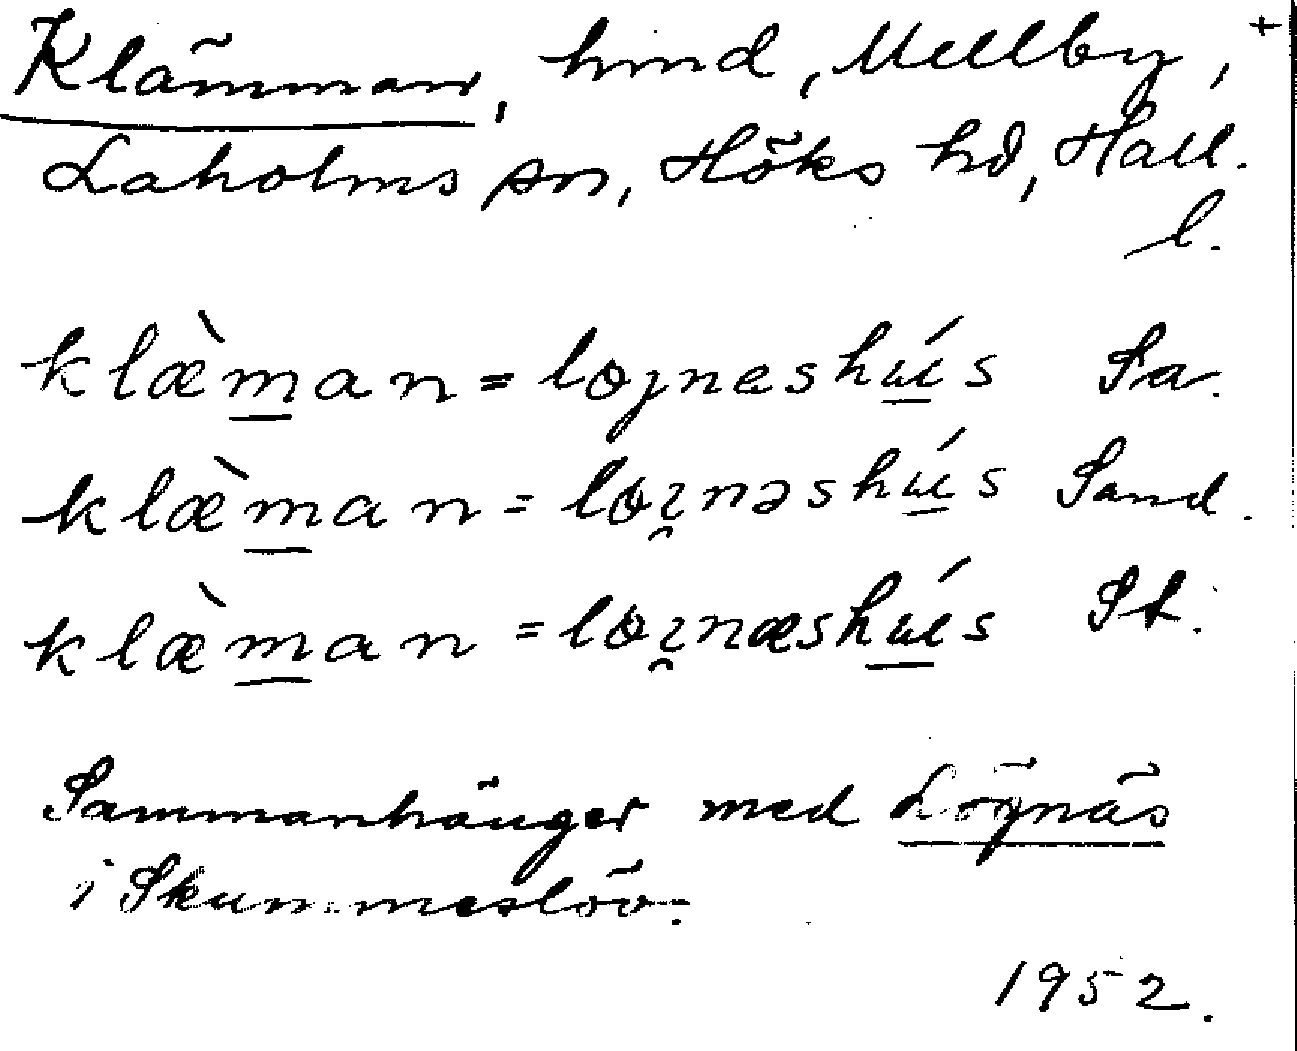 Klämman, hmd, Mellby, +
Laholms sn, Höks hd, Hall.
l.
klæ̀m̲an = lojneshú̲s Sa.
klæ̀m̲an = loi̯nəshú̲s Sand.
klæ̀m̲an = loi̯næshú̲s St.
Sammanhänger med Lögnäs
i Skummeslöv.
1952.